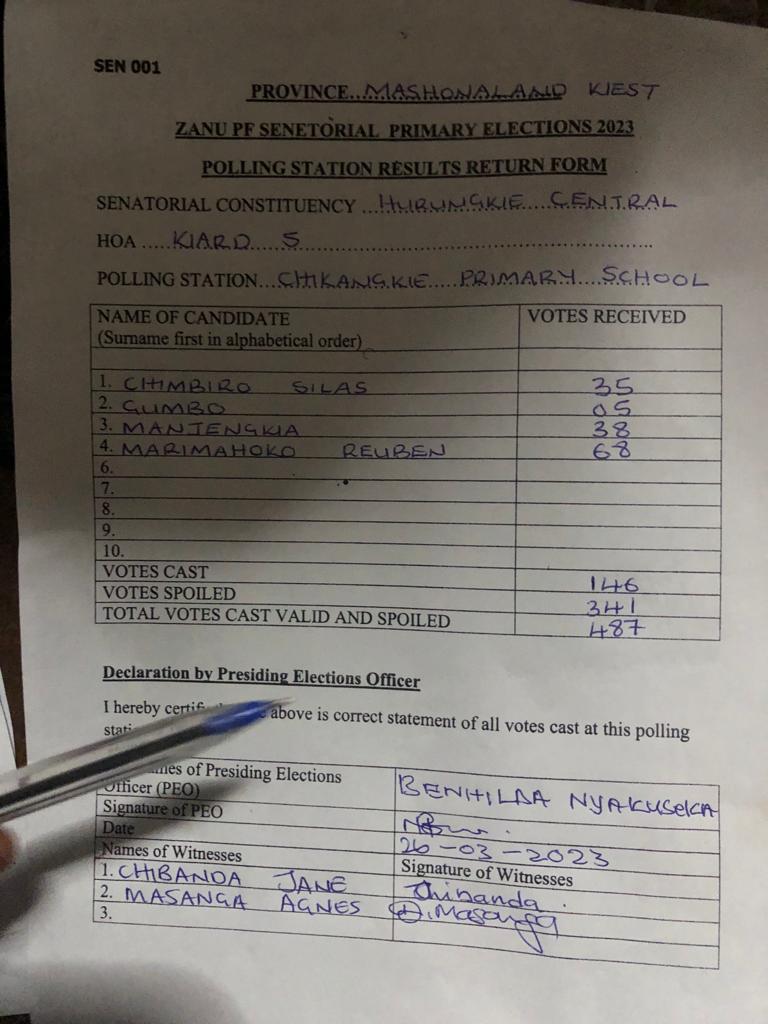 SEN 001
PROVINCE...MASHONALAND WEST
ZANU PF SENETORIAL PRIMARY ELECTIONS 2023
POLLING STATION RESULTS RETURN FORM
SENATORIAL CONSTITUENCY ...HURUNGWE....CENTRAL
HOA .....WARD.....5..........................................................
POLLING STATION...CHIKANGWE.....PRIMARY....SCHOOL
NAME OF CANDIDATE VOTES RECEIVED
(Surname first in alphabetical order)
1. CHIMBIRO SILAS 35
2. GUMBO 05
3. MANJENGWA 38
4. MARIMAHOKO REUBEN 68
6.
7.
8.
9.
10.
VOTES CAST 146
VOTES SPOILED 341
TOTAL VOTES CAST VALID AND SPOILED 487
Declaration by Presiding Elections Officer
I hereby above is correct statement of all votes cast at this polling
of Presiding Elections
Officer (PEO) BENHILDA NYAKUSEKA
Signature of PEO
Date 26-03-2023
Names of Witnesses Signature of Witnesses
1. CHIBANDA JANE Chibanda
2. MASANGA AGNES A.Masanga
3.